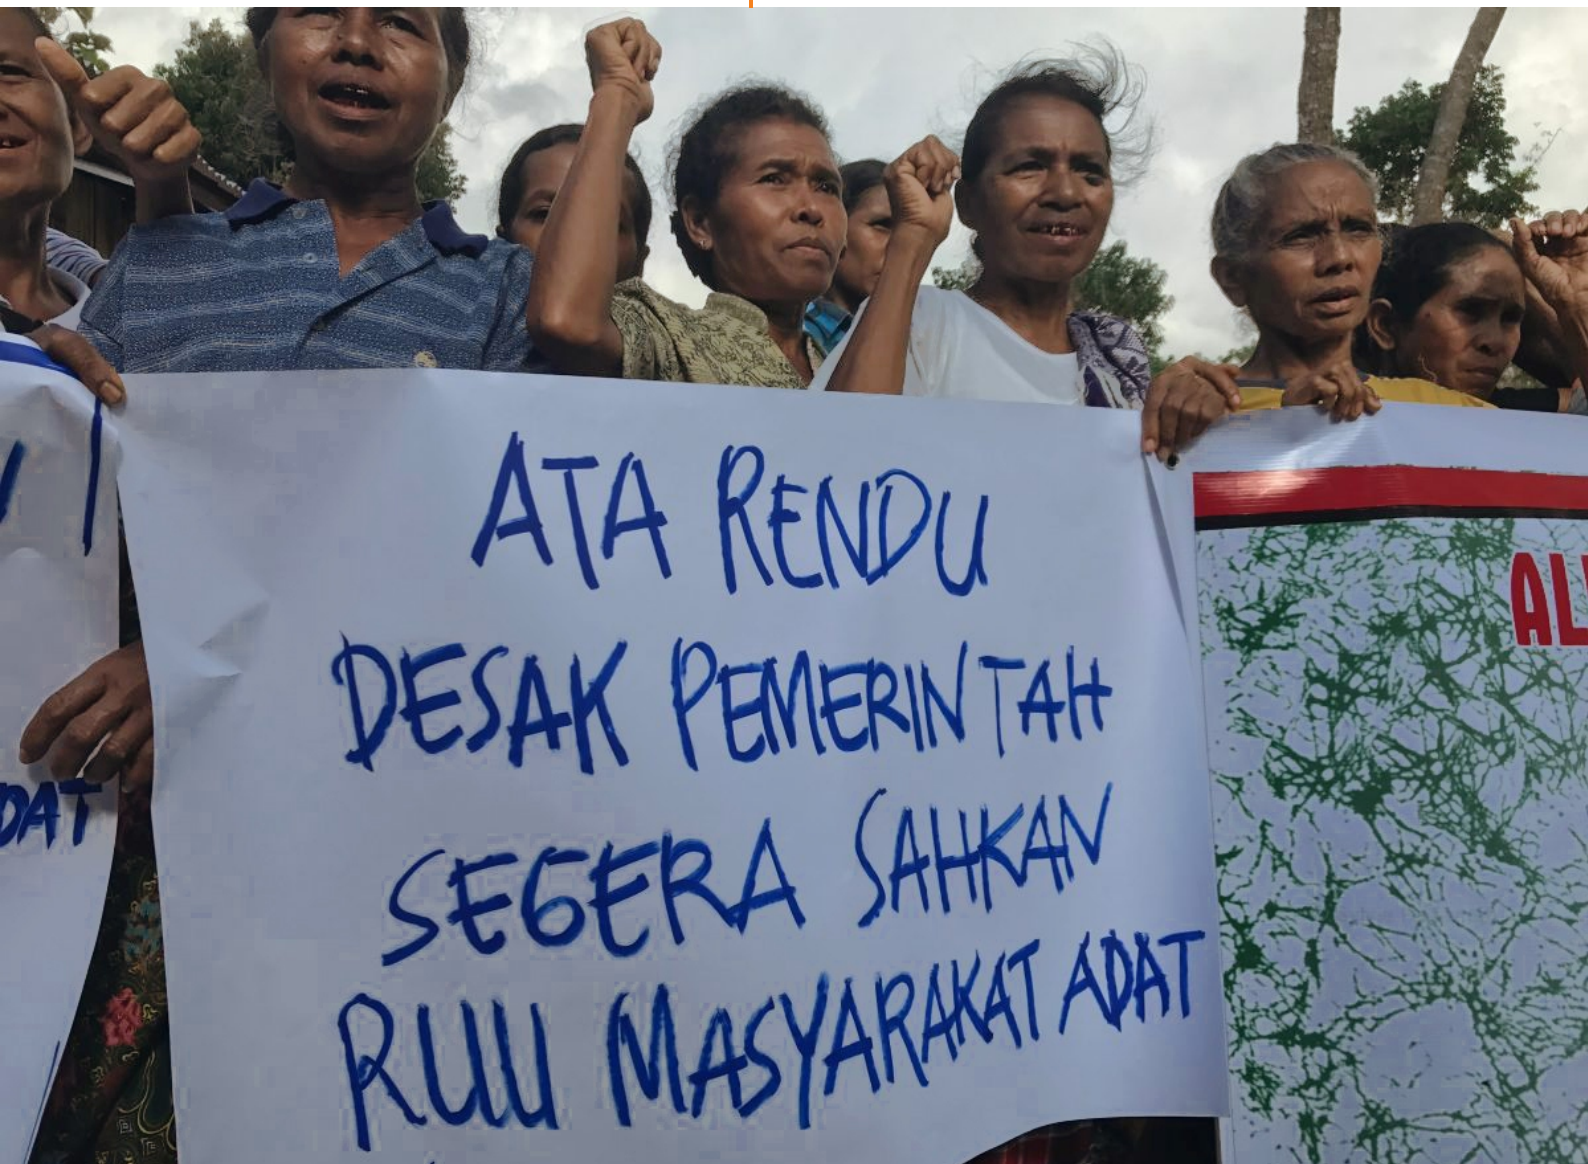 ATA RENDU
DESAK PEMERINTAH
SEGERA SAHKAN
RUU MASYARAKAT ADAT